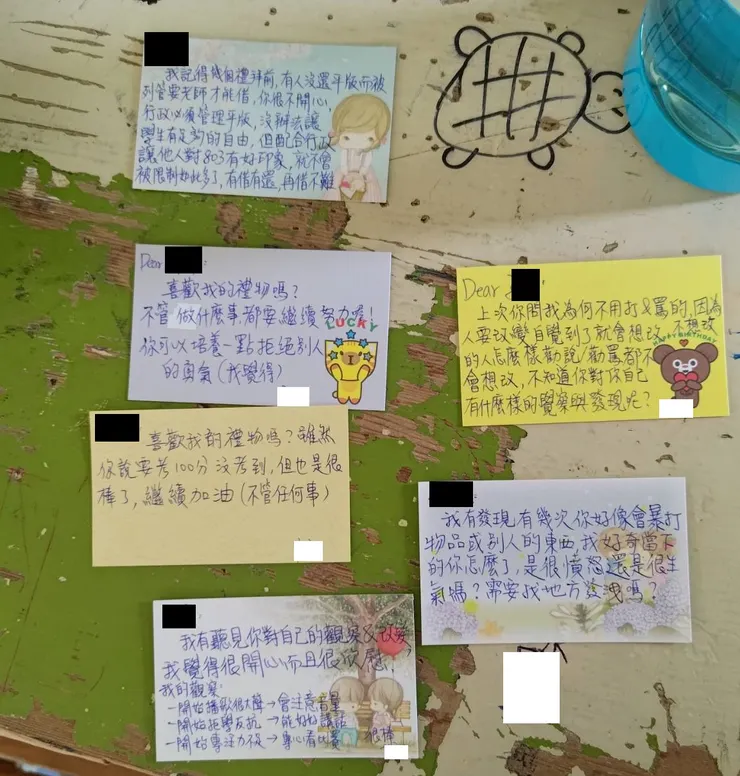 我記得幾個禮拜前,有人沒還平版而被
列管要老師才能借,你很不開心,
行政必須管理平版,沒辦法讓
學生有足夠的自由,但配合行政
讓他人對803有好印象,就不會
被限制如此多了,有借有還,再借不難
Dear
喜歡我的禮物嗎?
不管做什麼事都要繼續努力喔!
你可以培養一點拒絕別人
的勇氣(我覺得)
LUCKY
Dear
上次你問我為何不用打&罵的,因為
人要改變自覺到了就會想改,不想改
的人怎麼樣勸說/勸罵都不
會想改,不知道你對你自己
有什麼樣的覺察與發現呢?
HAPPY BIRTHDAY
喜歡我的禮物嗎?雖然
你說要考100分沒考到,但也是很
棒了,繼續加油(不管任何事)
我有發現有幾次你好像會暴打
物品或別人的東西,我好奇當下
的你怎麼了,是很憤怒還是很生
氣嗎?需要找地方發洩嗎?
我有聽見你對自己的觀察&改變
我覺得很開心而且很欣慰!
我的觀察:
-開始播歌很大聲→會注意音量
-開始拒學反抗→能好好講話
-開始專注力不足→專心看比賽 很棒